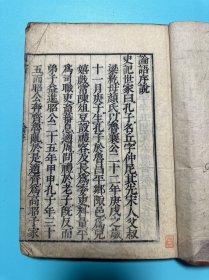 論語序說
史記世家曰孔子名丘字仲尼其先宋人父叔
梁紇母顏氏以魯襄公二十二年庚戌之歲
十一月庚子生孔子於魯昌平鄉陬邑為兒
嬉戲常陳俎豆設禮容及長為委吏料量平
為司職吏畜蕃息適周問禮於老子既反而
弟子益進昭公二十五年甲申孔子年三十
五而昭公奔齊魯亂於是適齊為高昭子家